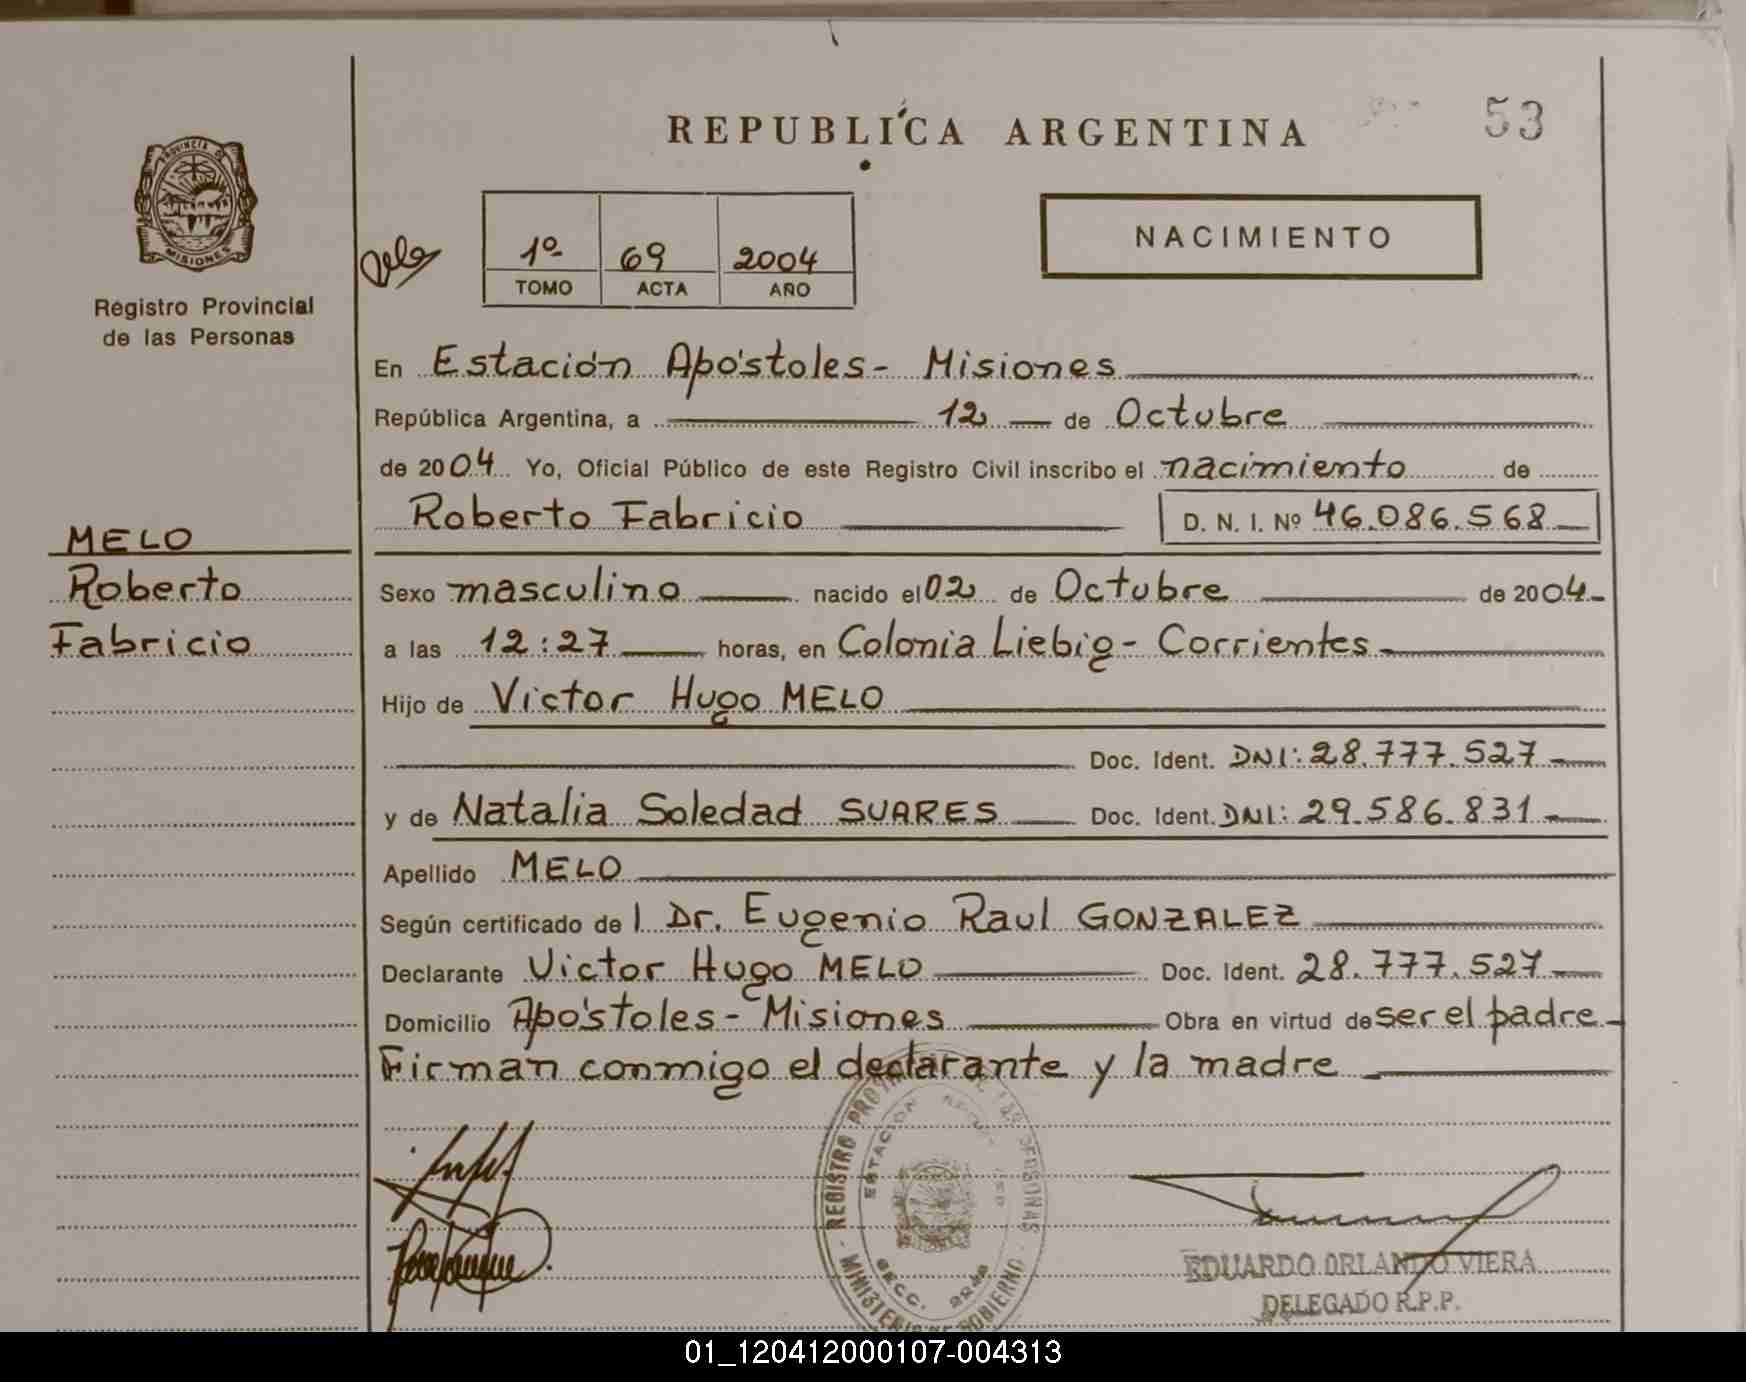 REPUBLICA ARGENTINA
53
PROVINCIA DE
MISIONES
Registro Provincial
de las Personas
1º 69 2004
TOMO ACTA AÑO
NACIMIENTO
En Estación Apóstoles - Misiones
República Argentina, a 12 de Octubre
de 2004 Yo, Oficial Público de este Registro Civil inscribo el nacimiento de
Roberto Fabricio D. N. I. Nº 46.086.568
MELO
Roberto
Fabricio
Sexo masculino nacido el 02 de Octubre de 2004
a las 12:27 horas, en Colonia Liebig - Corrientes
Hijo de Victor Hugo MELO
Doc. Ident. DNI: 28.777.527
y de Natalia Soledad SUARES Doc. Ident. DNI: 29.586.831
Apellido MELO
Según certificado de l Dr. Eugenio Raul GONZALEZ
Declarante Victor Hugo MELO Doc. Ident. 28.777.527
Domicilio Apóstoles - Misiones Obra en virtud de ser el padre
Firman conmigo el declarante y la madre
REGISTRO PERSONAS
ESTACIÓN
SECC.
MINISTERIO DE GOBIERNO
EDUARDO ORLANDO VIERA
DELEGADO R.P.P.
01_120412000107-004313